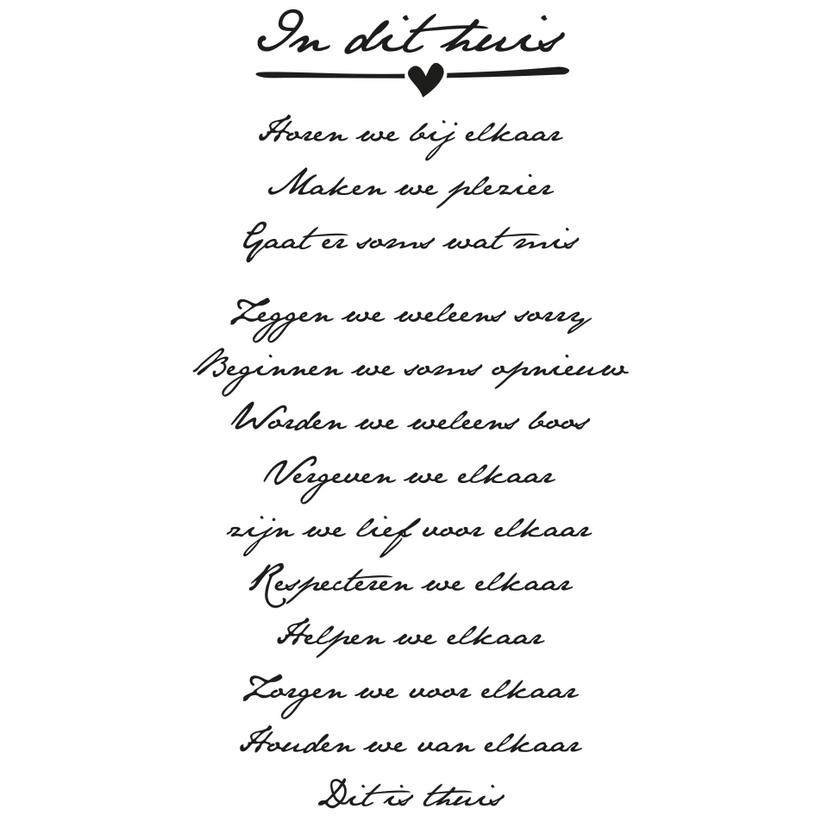 In dit thuis
Horen we bij elkaar
Maken we plezier
Gaat er soms wat mis
Zeggen we weleens sorry
Beginnen we soms opnieuw
Worden we weleens boos
Vergeven we elkaar
zijn we lief voor elkaar
Respecteren we elkaar
Helpen we elkaar
Zorgen we voor elkaar
Houden we van elkaar
Dit is thuis